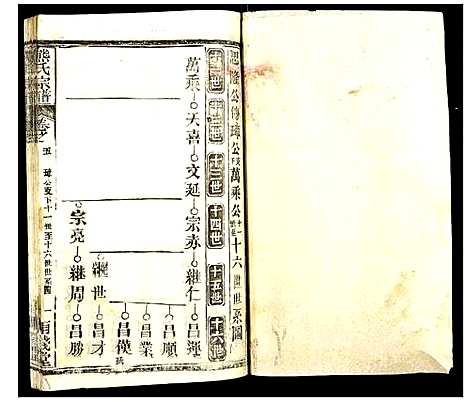 思隆公修璋公支下萬乘公十一世至十六世世系圖
十一世 十二世 十三世 十四世 十五世 十六世
萬乘 天喜 文延 宗赤 繼仁 昌運
昌順
昌業
昌僕
繼世 昌才
宗亮 繼周 昌勝
熊氏宗譜
卷之
五 璋公支下十一世至十六世世系圖